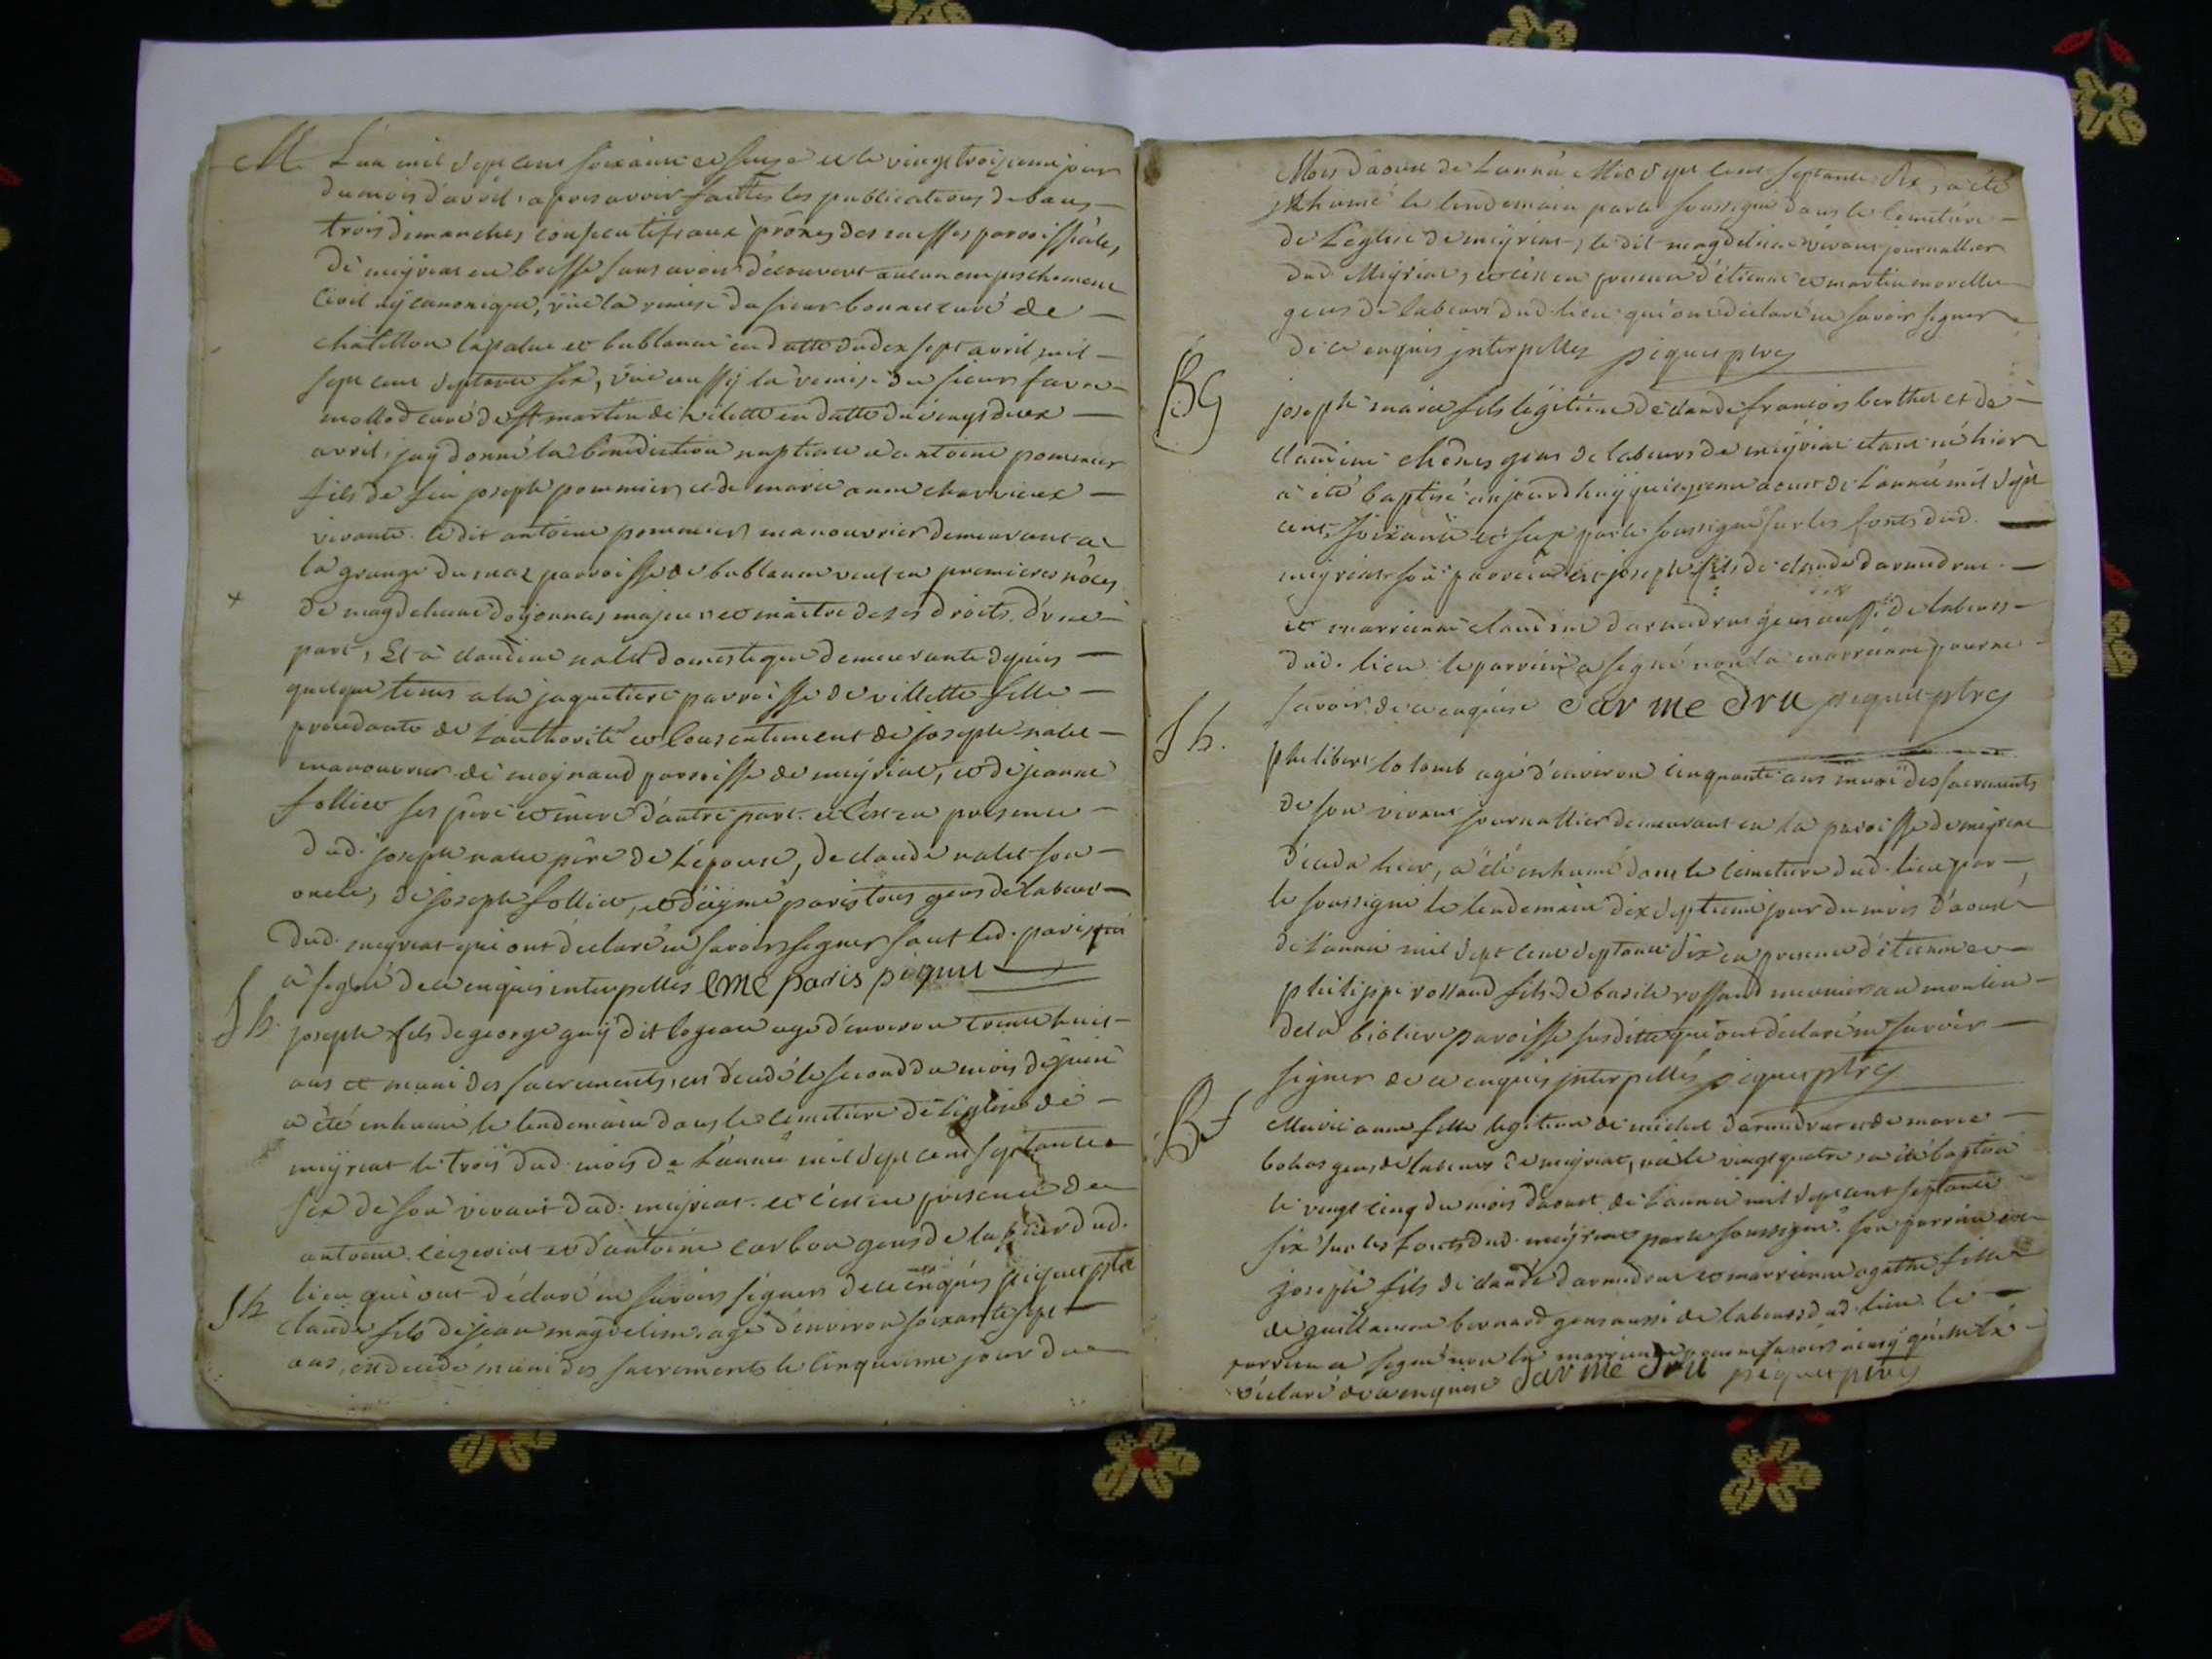 M. L'an mil sept cent soixante et seize et le vingt troizieme jour
du mois d'avril, apres avoir faittes les publications de bans
trois dimanches consecutifs aux prônes des messes paroissiales
de meyriat en bresse sans avoir découvert aucun empeschement
civil ny canonique, vüe la remise du sieur bonnet curé de
chatillon lapalue et bublanne en datte du dix sept avril mil
sept cent septante six, vüe aussy la remise du sieur favre
mollod curé de st martin de vilette en datte du vingt deux
avril, j'ay donné la benediction nuptiale a antoine pommier
fils de feu joseph pommier et de marie anne charvieux
vivante. le dit antoine pommier manouvrier demeurant a
la grange du maz parroisse de bublanne veuf en premieres nôces
de magdelaine dojonnas majeur et maitre de ses droits d'une
part, Et à claudine nalet domestique demeurante depuis
quelque tems a la jaquetiere parroisse de villette fille
procedante de l'authorité et consentement de joseph nalet
manouvrier de moynaud parroisse de meyriat, et de jeanne
folliet ses père et mère d'autre part. et c'est en presence
dud. joseph nalet père de l'épouse, de claude nalet son
oncle, de joseph folliet, et d'eymé paris tous gens de labeur
dud. meyriat qui ont declaré ne savoir signer sauf led. paris qui
a signé de ce enquis interpellés eme paris piquet
Sh. joseph fils de george guy dit logeau agé d'environ trente huit
ans et muni des sacrements, est decedé le second du mois de juin
a été enhumé le lendemain dans le cimetiere de l'eglise de
meyriat le trois dud. mois de l'année mil sept cent septante
six de son vivant dud. meyriat. et c'est en presence de
antoine et d'antoine carbon gens de labeur dud.
lieu qui ont déclaré ne savoir signer de ce enquis piquet ptre
Sh claude fils de jean magdelin agé d'environ soixante sept
ans, est decedé muni des sacrements le cinquieme jour du
Mois d'aoust de l'année Mil sept cent septante six, a été
inhumé le lendemain par le soussigné dans le cimetière
de l'eglise de meyriat, le dit magdelin vivant journallier
dud. Meyriat, et c'est en presence d'étienne et martin morellet
gens de labeurs dud. lieu qui ont declaré ne savoir signer
de ce enquis interpellés piquet ptre
BG joseph marie fils légitime de claude françois berthet et de
claudine chênes gens de labeurs de meyriat etant né hier
a été baptisé aujourdhuy quinzieme aoust de l'année mil sept
cent soixante et seize par le soussigné sur les fonts dud.
meyriat son parrein est joseph fils de claude darmedru
et marreinne claudine darmedru gens aussi de labeurs
dud. lieu le parrein a signé non la marreinne pour ne
savoir de ce enquise darmedru piquet ptre
Sh. philibert colomb agé d'environ cinquante ans muni des sacrements
de son vivant journallier demeurant en la paroisse de meyriat
décédé hier, a été enhumé dans le cimetiere dud. lieu par
le soussigné le lendemain dix septieme jour du mois d'aoust
de l'année mil sept cent septante six en presence d'étienne et
philippe rolland fils de basile rolland meunier au moulin
de la bioliere paroisse susditte qui ont déclaré ne savoir
signer de ce enquis interpellés piquet ptre
Bf Marie anne fille légitime de michel darmedru et de marie
bohas gens de labeurs de meyriat, née le vingt quatre, a été baptisée
le vingt cinq du mois d'aoust de l'année mil sept cent septante
six sur les fonts dud. meyriat par le soussigné. son parrein est
joseph fils de claude darmedru et marreinne agathe fille
de guillaume bernard gens aussi de labeurs dud. lieu. le
parrein a signé non la marreinne pour ne savoir ainsy qu'elle l'a
déclaré de ce enquise darmedru piquet ptre